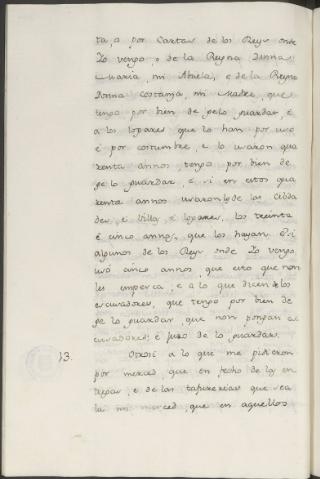 ta, o por Cartas de los Reyes onde
Yo vengo, o de la Reyna Donna
Maria, mi Abuela, e de la Reyna
Donna Costanza, mi Madre, que
tengo por bien de ge lo guardar, é
a los logares que lo han por uso
é por costumbre, e lo usaron qua
renta annos, tengo por bien de
ge lo guardar, e si en estos qua
renta annos usaron los de las Cibda
des, e Villas, e logares, los treinta
é cinco annos, que los hayan. E si
algunos de los Reyes onde Yo vengo
usó cinco annos, que esto que non
les imperca, e a lo que dicen de los
escusadores, que tengo por bien de
ge lo guardar, que non pongan es
cusadores é juro de lo guardar.
13. Otrosi a lo que me pidieron
por merced, que en fecho de las en
tregas, e de las
la mi merced, que en aquellos